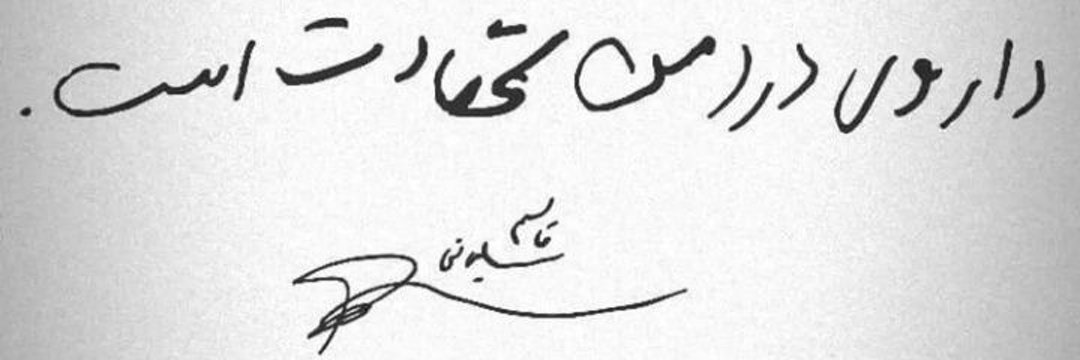 داروی درد من شهادت است.
قاسم
سلیمانی